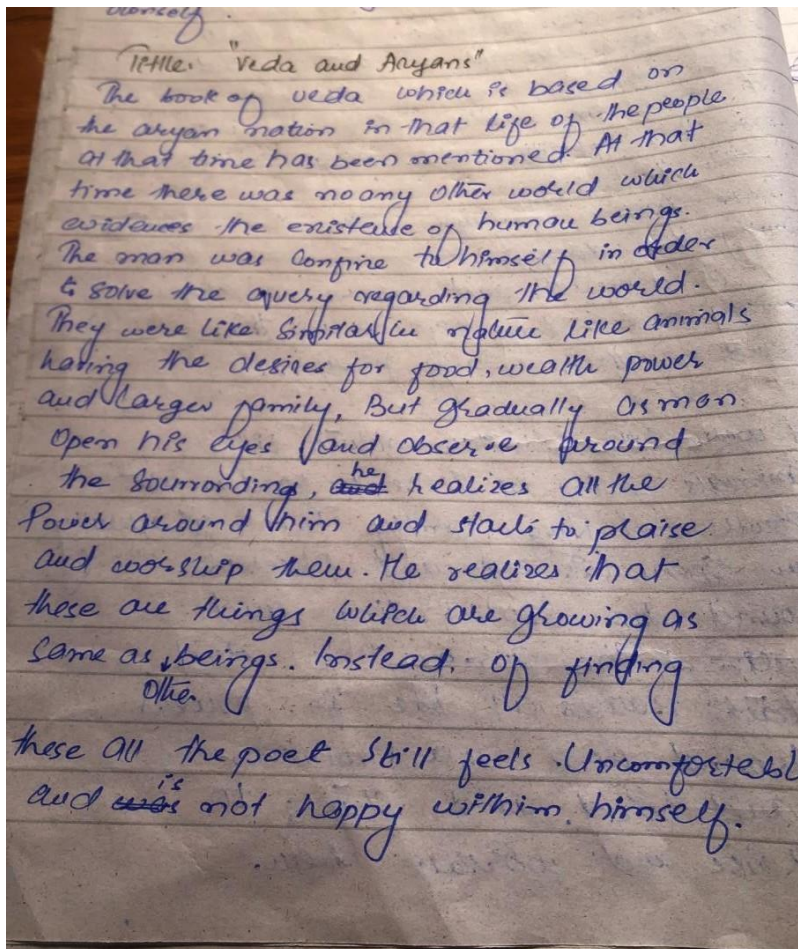 himself.
Tittle. "Veda and Aryans"
The book of veda which is based on
the aryan nation in that life of the people
at that time has been mentioned. At that
time there was no any other world which
evidences the existence of human beings.
The man was confine to himself in order
to solve the query regarding the world.
They were like similar in nature like animals
having the desires for food, wealth power
and larger family, But gradually as man
open his eyes and observe around
the sourrondings, he realizes all the
Power around him and starts to praise
and worship them. He realizes that
these are things which are growing as
same as other beings. Instead. of finding
these all the poet still feels Uncomfortabl
and is not happy within himself.